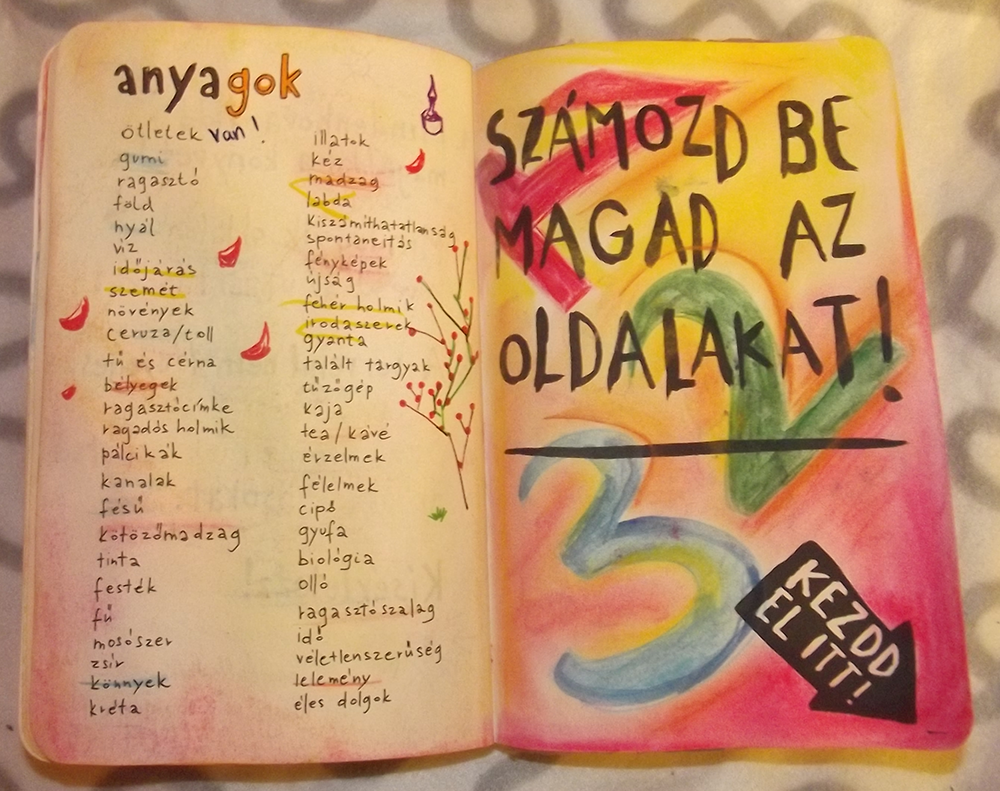 anyagok
ötletek van!
gumi
ragasztó
föld
nyál
víz
időjárás
szemét
növények
ceruza/toll
tű és cérna
bélyegek
ragasztócímke
ragadós holmik
pálcikák
kanalak
fésű
kötözőmadzag
tinta
festék
fű
mosószer
zsír
könnyek
kréta
illatok
kéz
madzag
labda
kiszámíthatatlanság
spontaneitás
fényképek
újság
fehér holmik
irodaszerek
gyanta
talált tárgyak
tűzőgép
kaja
tea/kávé
érzelmek
félelmek
cipő
gyufa
biológia
olló
ragasztószalag
idő
véletlenszerűség
lelemény
éles dolgok
SZÁMOZD BE
MAGAD AZ
OLDALAKAT!
1
2
3
KEZDD
EL ITT!